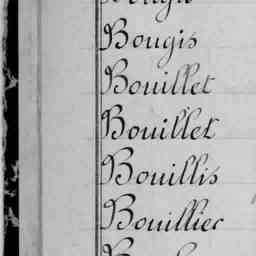 Bougis
Bouillet
Bouillet
Bouillis
Bouillier